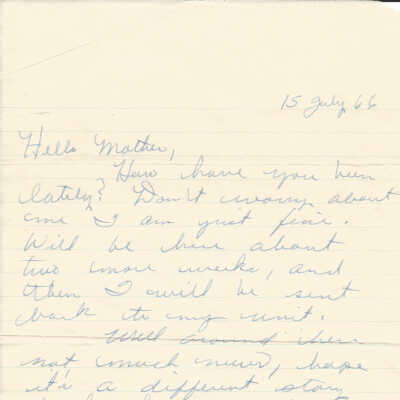 15 July 66
Hello Mother,
How have you been
lately? Don't worry about
me I am just fine.
Will be here about
two more weeks, and
then I will be sent
back to my unit.
Well around here
not much news, hope
it's a different story